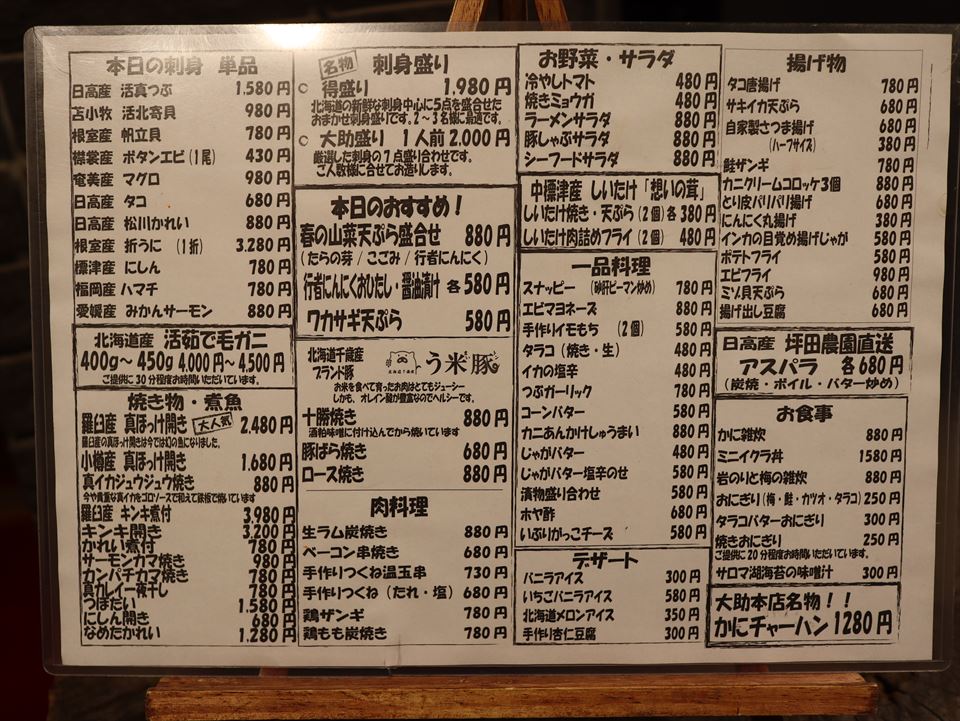 本日の刺身 単品
日高産 活真つぶ 1.580円
苫小牧 活北寄貝 980円
根室産 帆立貝 780円
襟裳産 ボタンエビ(1尾) 430円
奄美産 マグロ 980円
日高産 タコ 680円
日高産 松川かれい 880円
根室産 折うに (1折) 3,280円
標津産 にしん 780円
福岡産 ハマチ 780円
愛媛産 みかんサーモン 880円
北海道産 活茹で毛ガニ
400g～450g 4,000円～4,500円
ご提供に30分程度お時間いただいています。
焼き物・煮魚
羅臼産 真ほっけ開き 大人気 2,480円
羅臼産の真ほっけ開きは今では幻の魚になりました。
小樽産 真ほっけ開き 1,680円
真イカジュウジュウ焼き 880円
今や貴重な真イカをゴロソースで和えて鉄板で焼いています
羅臼産 キンキ煮付 3,980円
キンキ開き 3,200円
かれい煮付 780円
サーモンカマ焼き 980円
カンパチカマ焼き 780円
真カレイ一夜干し 780円
つぼだい 1,580円
にしん開き 680円
なめたかれい 1,280円
名物 刺身盛り
○ 得盛り 1,980円
北海道の新鮮な刺身中心に5点を盛合せた
おまかせ刺身盛りです。2～3名様に最適です。
○ 大助盛り 1人前 2,000円
厳選した刺身の7点盛り合わせです。
ご人数様に合せてお造りします。
本日のおすすめ！
春の山菜天ぷら盛合せ 880円
(たらの芽/こごみ/行者にんにく)
行者にんにくおひたし・醤油漬け 各580円
ワカサギ天ぷら 580円
北海道千歳産
ブランド豚 う米豚
お米を食べて育ったお肉はとてもジューシー
しかも、オレイン酸が豊富なのでヘルシーです。
十勝焼き 880円
酒粕味噌に付け込んでから焼いています
豚ばら焼き 680円
ロース焼き 880円
肉料理
生ラム炭焼き 880円
ベーコン串焼き 680円
手作りつくね温玉串 730円
手作りつくね(たれ・塩) 680円
鶏ザンギ 780円
鶏もも炭焼き 780円
お野菜・サラダ
冷やしトマト 480円
焼きミョウガ 480円
ラーメンサラダ 880円
豚しゃぶサラダ 880円
シーフードサラダ 880円
中標津産 しいたけ「想いの茸」
しいたけ焼き・天ぷら(2個)各380円
しいたけ肉詰めフライ(2個) 480円
一品料理
スナッピー (砂肝ピーマン炒め) 780円
エビマヨネーズ 880円
手作りイモもち (2個) 580円
タラコ(焼き・生) 480円
イカの塩辛 480円
つぶガーリック 780円
コーンバター 580円
カニあんかけしゅうまい 880円
じゃがバター 480円
じゃがバター塩辛のせ 580円
漬物盛り合わせ 580円
ホヤ酢 680円
いぶりがっこチーズ 580円
デザート
バニラアイス 300円
いちごバニラアイス 580円
北海道メロンアイス 350円
手作り杏仁豆腐 300円
揚げ物
タコ唐揚げ 780円
サキイカ天ぷら 680円
自家製さつま揚げ 680円
(ハーフサイズ) 380円
鮭ザンギ 780円
カニクリームコロッケ3個 880円
とり皮パリパリ揚げ 680円
にんにく丸揚げ 380円
インカの目覚め揚げじゃが 580円
ポテトフライ 580円
エビフライ 980円
ミゾ貝天ぷら 680円
揚げ出し豆腐 680円
日高産 坪田農園直送
アスパラ 各680円
(炭焼・ボイル・バター炒め)
お食事
かに雑炊 880円
ミニイクラ丼 1580円
岩のりと梅の雑炊 880円
おにぎり(梅・鮭・カツオ・タラコ)250円
タラコバターおにぎり 300円
焼きおにぎり 250円
ご提供に20分程度お時間いただいています。
サロマ湖海苔の味噌汁 300円
大助本店名物！！
かにチャーハン 1280円